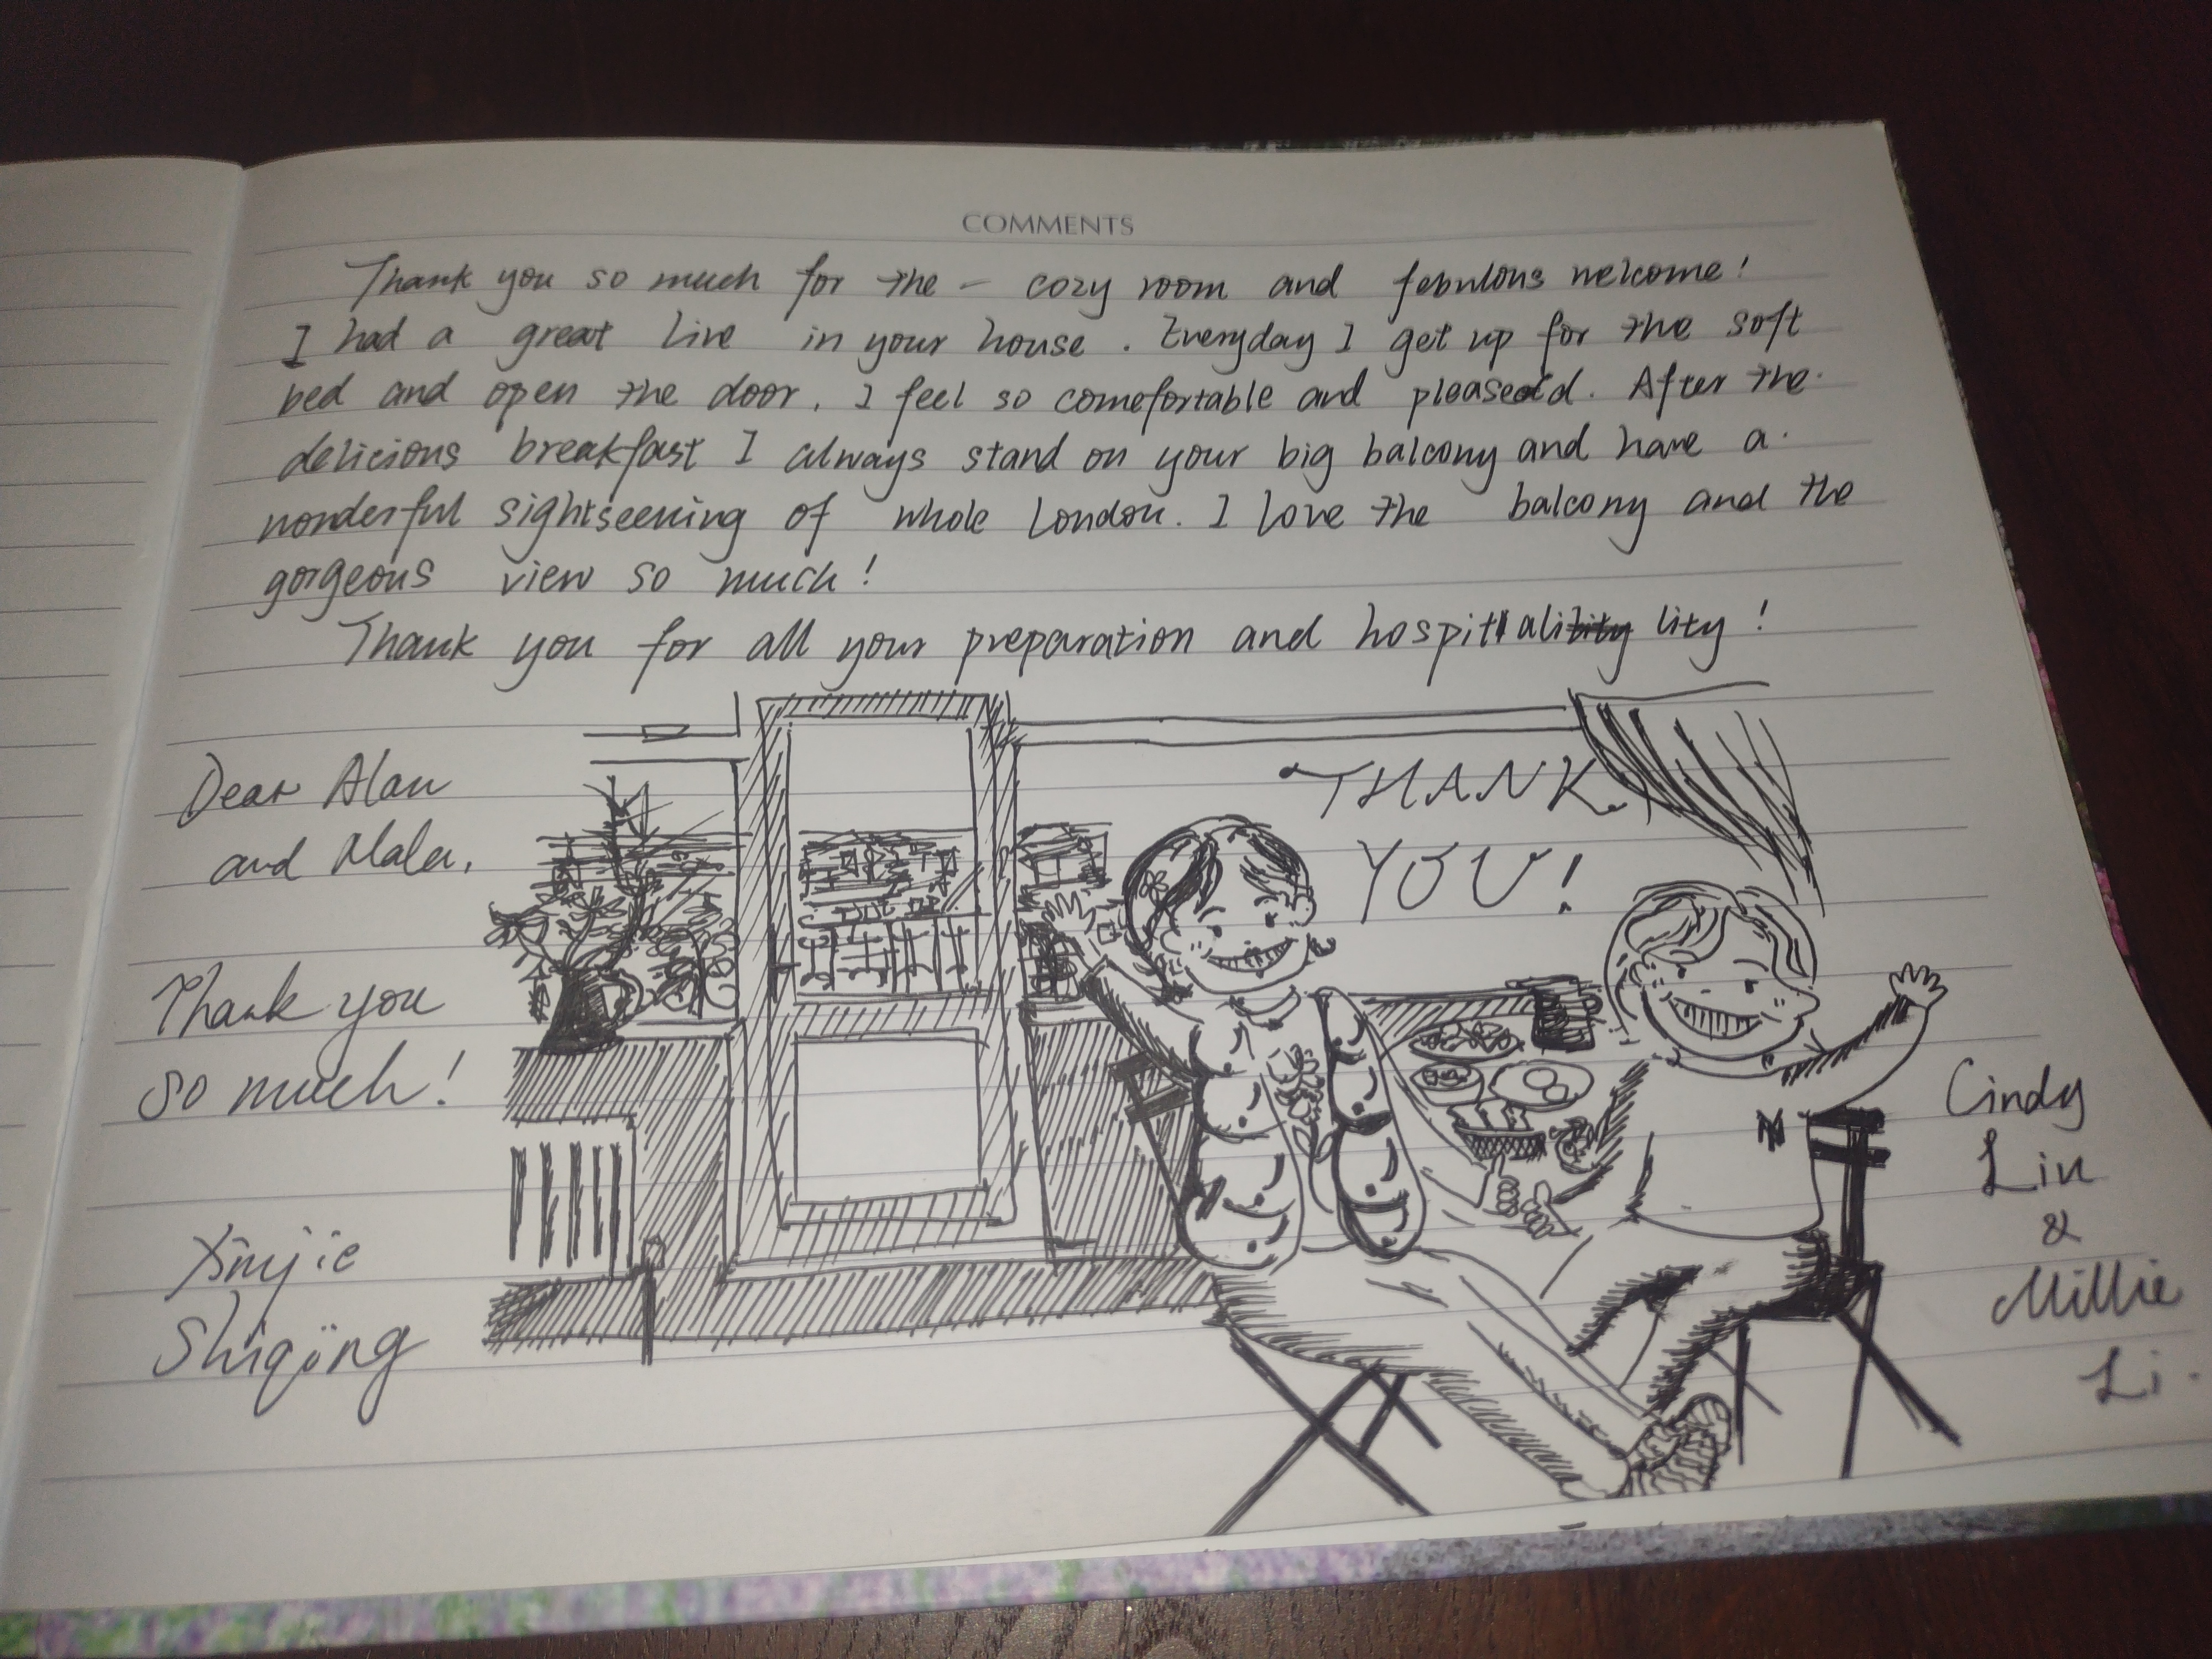 COMMENTS
Thank you so much for the - cozy room and febulous welcome!
I had a great live in your house. Everyday I get up for the soft
bed and open the door, I feel so comefortable and pleased. After the
delicious breakfast I always stand on your big balcony and have a
wonderful sightseening of whole London. I love the balcony and the
gorgeous view so much!
Thank you for all your preparation and hospitality!
Dear Alan
and Mala,
THANK
YOU!
Thank you
so much!
Xinjie
Shiqing
Cindy
Lin
&
Millie
Li.